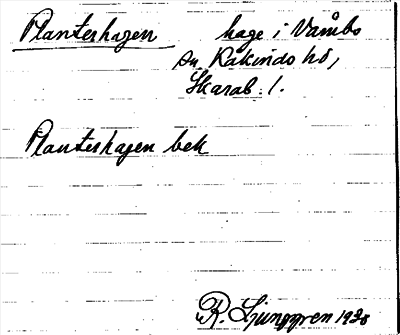 Planterhagen hage i Våmbo
sn, Kåkinds hd,
Skarab. l.
Planterhagen bek
R. Ljunggren 1928